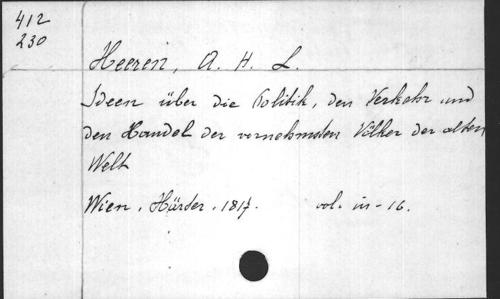 412
230
Heeren, A. H. L.
Ideen über die Politik, den Verkehr und
den Handel der vornehmsten Völker der alten
Welt
Wien. Härter. 1817. vol. in-16.